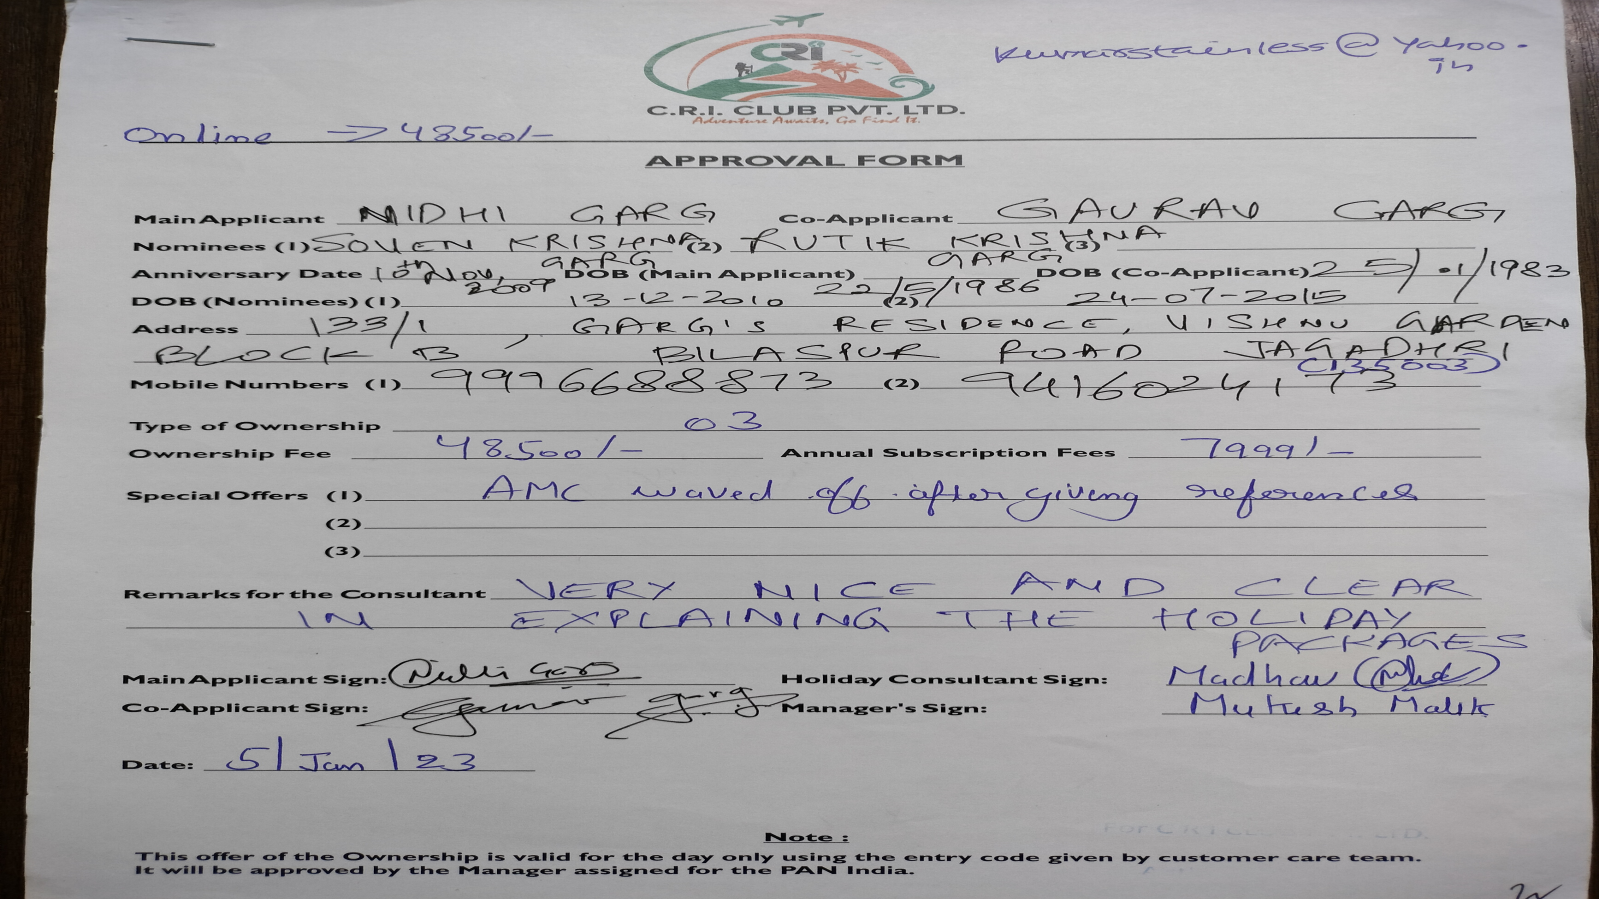 CRI
C.R.I. CLUB PVT. LTD.
Adventure Awaits, Go Find It.
kumarstainless@yahoo.in
Online → 48500/-
APPROVAL FORM
Main Applicant NIDHI GARG Co-Applicant GAURAV GARG
Nominees (1) SOVEN KRISHNA GARG (2) RUTIK KRISHNA GARG (3)
Anniversary Date 10th Nov, 2009 DOB (Main Applicant) 22/5/1986 DOB (Co-Applicant) 25/01/1983
DOB (Nominees) (1) 13-12-2010 (2) 24-07-2015
Address 133/1, GARG'S RESIDENCE, VISHNU GARDEN
BLOCK B BILASPUR ROAD JAGADHRI
(135003)
Mobile Numbers (1) 9996688873 (2) 9416024173
Type of Ownership 03
Ownership Fee 48500/- Annual Subscription Fees 7999/-
Special Offers (1) AMC waved off after giving references
(2)
(3)
Remarks for the Consultant VERY NICE AND CLEAR
IN EXPLAINING THE HOLIDAY
PACKAGES
Main Applicant Sign: Nidhi Garg Holiday Consultant Sign: Madhav
Co-Applicant Sign: Gaurav Garg Manager's Sign: Mukesh Malik
Date: 5/Jan/23
Note :
This offer of the Ownership is valid for the day only using the entry code given by customer care team.
It will be approved by the Manager assigned for the PAN India.